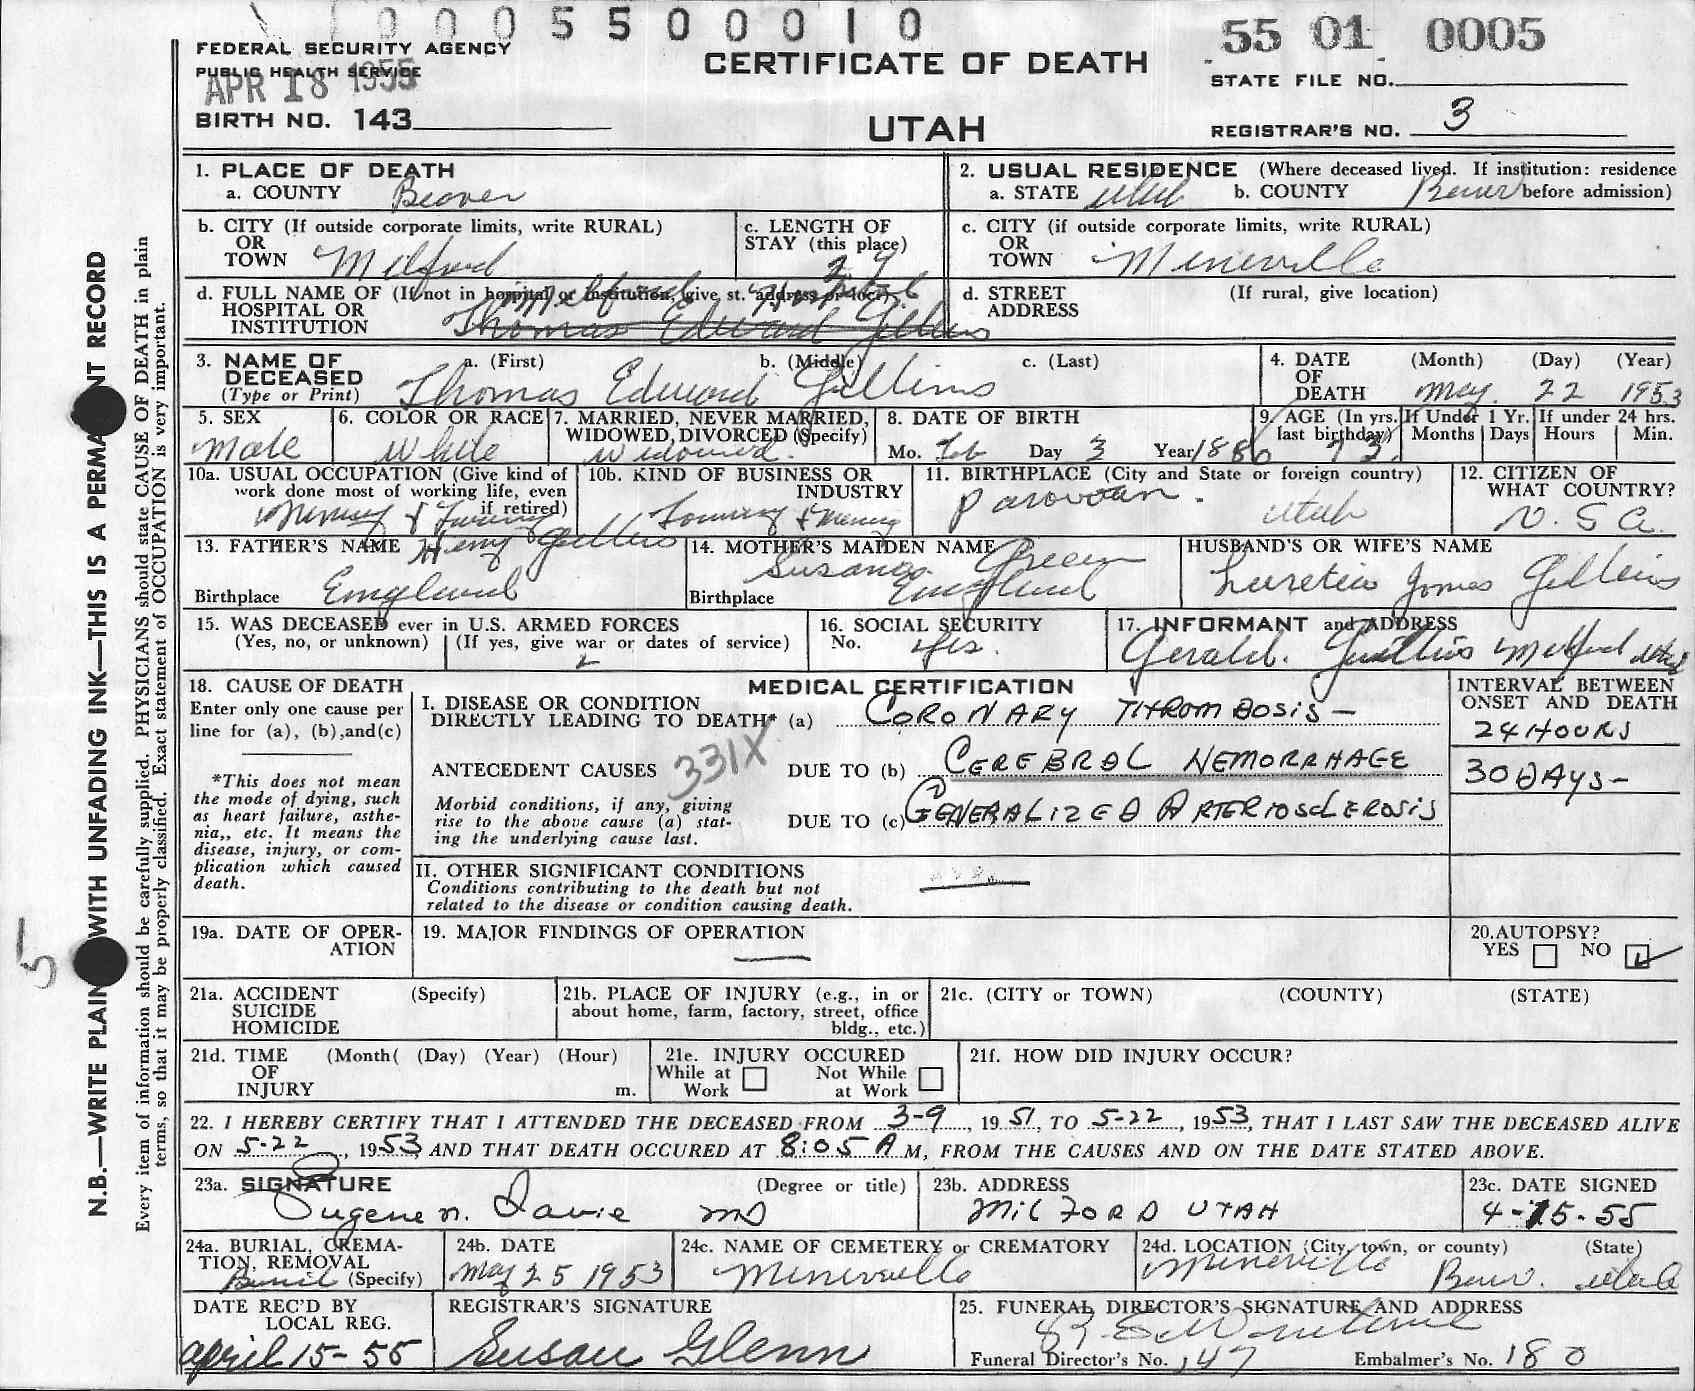 0005500010
55 01 0005
FEDERAL SECURITY AGENCY
PUBLIC HEALTH SERVICE
APR 18 1955
BIRTH NO. 143
CERTIFICATE OF DEATH
UTAH
STATE FILE NO.
REGISTRAR'S NO. 3
N.B.—WRITE PLAIN WITH UNFADING INK—THIS IS A PERMA NT RECORD
Every item of information should be carefully supplied. PHYSICIANS should state CAUSE OF DEATH in plain
terms, so that it may be properly classified. Exact statement of OCCUPATION is very important.
5
1. PLACE OF DEATH
a. COUNTY Beaver
2. USUAL RESIDENCE (Where deceased lived. If institution: residence
a. STATE Utah b. COUNTY Beaver before admission)
b. CITY (If outside corporate limits, write RURAL)
OR
TOWN Milford
c. LENGTH OF
STAY (this place)
c. CITY (if outside corporate limits, write RURAL)
OR
TOWN Minersville
d. FULL NAME OF (If not in hospital or institution, give st. address or loc.)
HOSPITAL OR
INSTITUTION
Milford Hospital
Thomas Edward Gillins
d. STREET (If rural, give location)
ADDRESS
3. NAME OF a. (First) b. (Middle) c. (Last)
DECEASED
(Type or Print) Thomas Edward Gillins
4. DATE (Month) (Day) (Year)
OF
DEATH May. 22 1953
5. SEX
Male
6. COLOR OR RACE
White
7. MARRIED, NEVER MARRIED,
WIDOWED, DIVORCED (Specify)
Widowed.
8. DATE OF BIRTH
Mo. Feb Day 3 Year 1880
9. AGE (In yrs.
last birthday)
73.
If Under 1 Yr.
Months Days
If under 24 hrs.
Hours Min.
10a. USUAL OCCUPATION (Give kind of
work done most of working life, even
if retired)
Mining & Farming
10b. KIND OF BUSINESS OR
INDUSTRY
Farming & Mining
11. BIRTHPLACE (City and State or foreign country)
Parowan. Utah
12. CITIZEN OF
WHAT COUNTRY?
U. S A.
13. FATHER'S NAME Henry Gillins
Birthplace England
14. MOTHER'S MAIDEN NAME
Susana Green
Birthplace England
HUSBAND'S OR WIFE'S NAME
Luretia Jones Gillins
15. WAS DECEASED ever in U.S. ARMED FORCES
(Yes, no, or unknown) (If yes, give war or dates of service)
16. SOCIAL SECURITY
No. Yes.
17. INFORMANT and ADDRESS
Gerald. Gillins Milford Utah
18. CAUSE OF DEATH
Enter only one cause per
line for (a), (b),and(c)
*This does not mean
the mode of dying, such
as heart failure, asthe-
nia,, etc. It means the
disease, injury, or com-
plication which caused
death.
MEDICAL CERTIFICATION
I. DISEASE OR CONDITION
DIRECTLY LEADING TO DEATH* (a) CORONARY THROMBOSIS—
331X
ANTECEDENT CAUSES DUE TO (b) CEREBRAL HEMORRHAGE
Morbid conditions, if any, giving
rise to the above cause (a) stat-
ing the underlying cause last.
DUE TO (c) GENERALIZED ARTERIOSCLEROSIS
INTERVAL BETWEEN
ONSET AND DEATH
24 HOURS
30 DAYS—
II. OTHER SIGNIFICANT CONDITIONS
Conditions contributing to the death but not
related to the disease or condition causing death.
19a. DATE OF OPER-
ATION
19. MAJOR FINDINGS OF OPERATION
20. AUTOPSY?
YES NO
21a. ACCIDENT (Specify)
SUICIDE
HOMICIDE
21b. PLACE OF INJURY (e.g., in or
about home, farm, factory, street, office
bldg., etc.)
21c. (CITY or TOWN) (COUNTY) (STATE)
21d. TIME (Month( (Day) (Year) (Hour)
OF
INJURY m.
21e. INJURY OCCURED
While at Not While
Work at Work
21f. HOW DID INJURY OCCUR?
22. I HEREBY CERTIFY THAT I ATTENDED THE DECEASED FROM 3-9, 1951, TO 5-22, 1953, THAT I LAST SAW THE DECEASED ALIVE
ON 5-22, 1953, AND THAT DEATH OCCURED AT 8:05 A M, FROM THE CAUSES AND ON THE DATE STATED ABOVE.
23a. SIGNATURE (Degree or title)
Eugene N. Davie MD
23b. ADDRESS
MILFORD UTAH
23c. DATE SIGNED
4-15-55
24a. BURIAL, CREMA-
TION, REMOVAL
Burial (Specify)
24b. DATE
May 25 1953
24c. NAME OF CEMETERY or CREMATORY
Minersville
24d. LOCATION (City, town, or county) (State)
Minersville Beaver. Utah
DATE REC'D BY
LOCAL REG.
April 15-55
REGISTRAR'S SIGNATURE
Susan Glenn
25. FUNERAL DIRECTOR'S SIGNATURE AND ADDRESS
Funeral Director's No. 147 Embalmer's No. 180